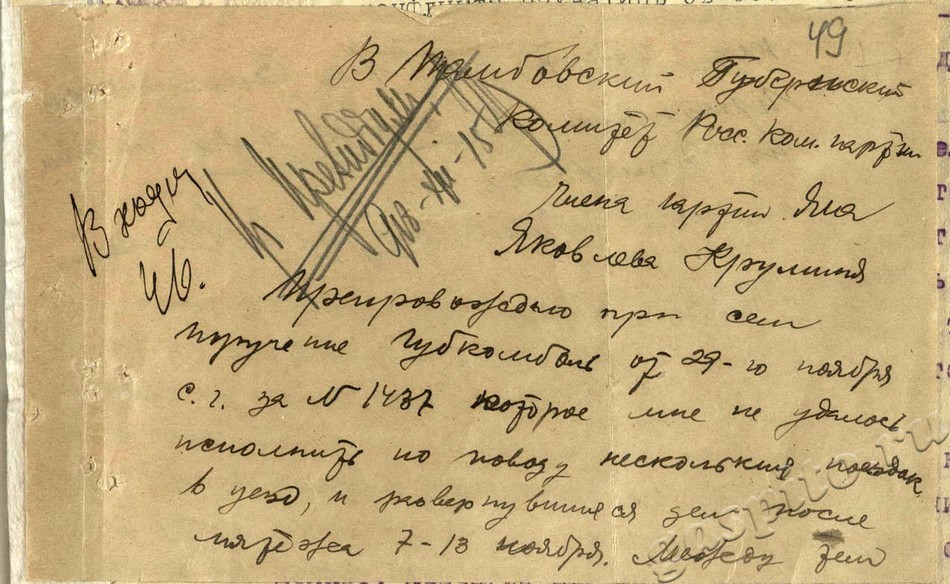 49
В Тамбовский Губернский
Комитет Росс. Ком. партии
Члена партии Яна
Яковлева Крулиня
В
46.
К
Препровождаю при сем
поручение Губкомболь от 29-го ноября
с. г. за № 1437 которое мне не удалось
исполнить по поводу нескольких поездок
в уезд, и развернувшихся дел после
мятежа 7-13 ноября. Между тем
gaspito.ru